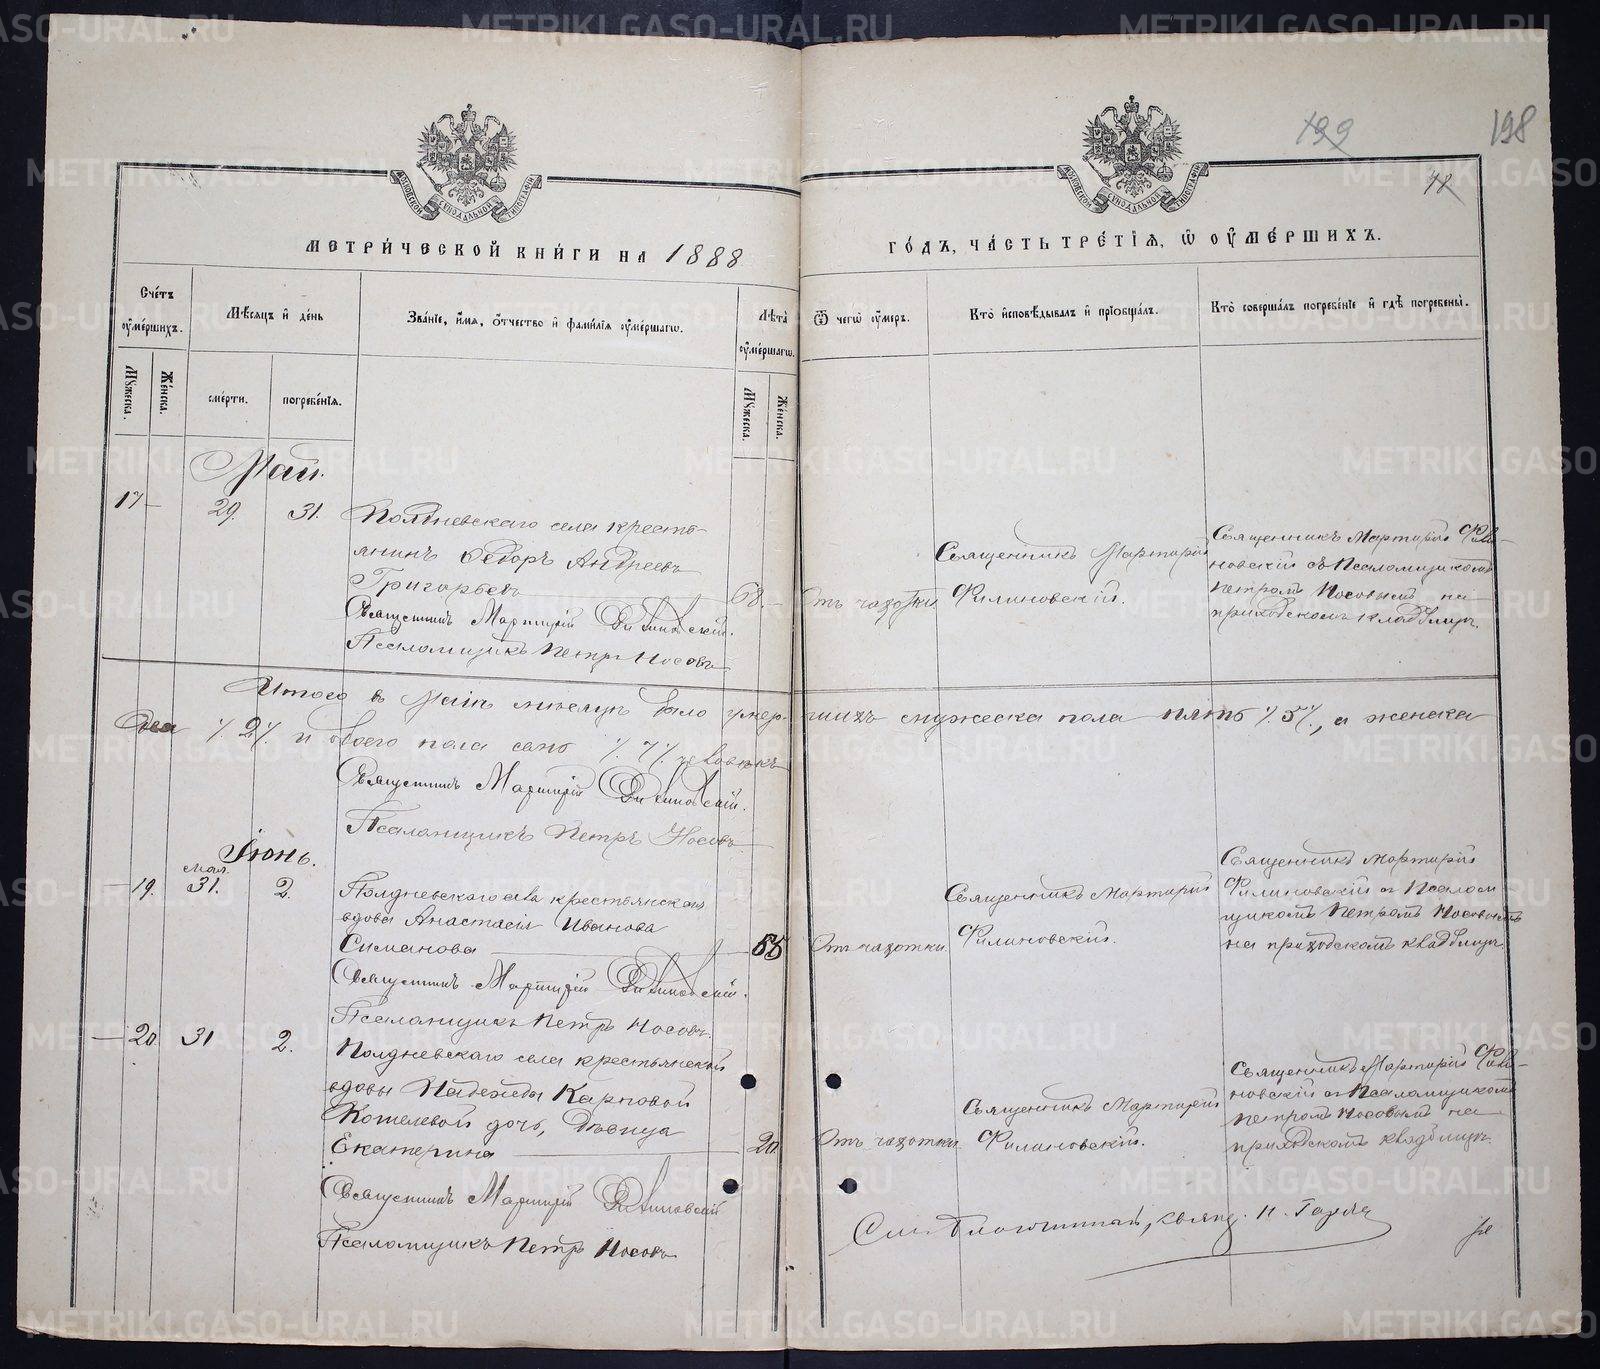 199
198
78
МЕТРИ́ЧЕСКОЙ КНИ́ГИ НА 1888
ГО́ДЪ, ЧА́СТЬ ТРЕ́ТІЯ, Ѿ ОУ҆МЕ́РШИХЪ.
Сче́тъ оу҆ме́ршихъ.
Мѣ́сяцъ и҆ де́нь
Зва́ніе, и҆́мя, о҆́тчество и҆ фами́лія оу҆ме́ршагѡ.
Лѣ́та оу҆ме́ршагѡ.
Ѿ чегѡ̀ оу҆́меръ.
Кто̀ и҆сповѣ́дывалъ и҆ прїобща́лъ.
Кто̀ соверша́лъ погребе́ніе и҆ гдѣ̀ погребены̀.
Мꙋ́жеска.
Же́нска.
сме́рти.
погребе́нія.
Мꙋ́жеска.
Же́нска.
Май.
17 — 29. 31. Полдневскаго села кресть-
янинъ Ѳедоръ Андреевъ
Григорьевъ 68. —
Священникъ Мартирій Филиновскій.
Псаломщикъ Петръ Носовъ
Отъ чахотки
Священникъ Мартирій
Филиновскій.
Священникъ Мартирій Фили-
новскій съ Псаломщикомъ
Петромъ Носовымъ на
приходскомъ кладбищѣ.
Итого в Маѣ месяцѣ было умер- шихъ мужеска пола пять /.5/., а женска
два /.2/. и обоего пола семь /.7/. человѣкъ
Священникъ Мартирій Филиновскій.
Псаломщикъ Петръ Носовъ
Іюнь.
мая
— 19. 31. 2. Полдневскаго села крестьянская
вдова Анастасія Иванова
Симанова — 55
Священникъ Мартирій Филиновскій.
Псаломщикъ Петръ Носовъ.
Отъ чахотки.
Священникъ Мартирій
Филиновскій.
Священникъ Мартирій
Филиновскій съ Псалом
щикомъ Петромъ Носовымъ
на приходскомъ кладбищѣ.
— 20. 31 2. Полдневскаго села крестьянской
вдовы Надежды Карповой
Кошелевой дочь, дѣвица
Екатерина — 20.
Священникъ Мартирій Филиновскій
Псаломщикъ Петръ Носовъ
Отъ чахотки.
Священникъ Мартирій
Филиновскій.
Священникъ Мартирій Фили-
новскій съ Псаломщикомъ
Петромъ Носовымъ на
приходскомъ кладбищѣ.
METRIKI.GASO-URAL.RU